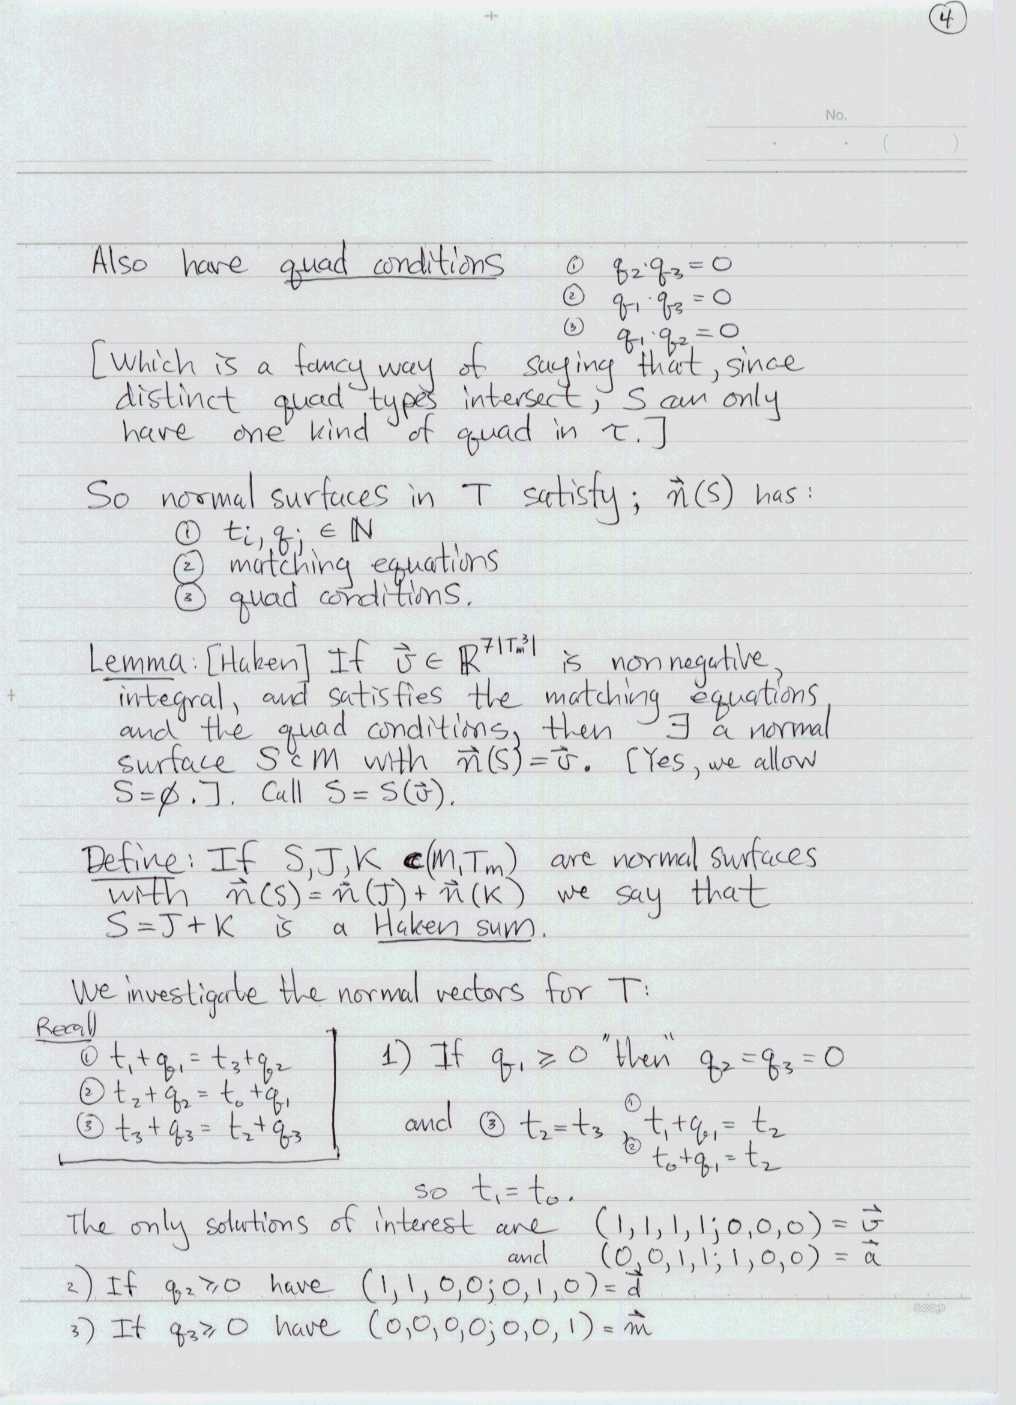 4
No.
Also have quad conditions ① q₂·q₃ = 0
② q₁·q₃ = 0
③ q₁·q₂ = 0
[Which is a fancy way of saying that, since
distinct quad types intersect, S can only
have one kind of quad in τ.]
So normal surfaces in T satisfy; n⃗(S) has:
① tᵢ, qⱼ ∈ ℕ
② matching equations
③ quad conditions.
Lemma: [Haken] If v⃗ ∈ ℝ^{7|T_m^3|} is nonnegative,
integral, and satisfies the matching equations
and the quad conditions, then ∃ a normal
surface S ⊂ M with n⃗(S) = v⃗. [Yes, we allow
S = ∅.]. Call S = S(v⃗).
Define: If S, J, K ⊂ (M, T_m) are normal surfaces
with n⃗(S) = n⃗(J) + n⃗(K) we say that
S = J + K is a Haken sum.
We investigate the normal vectors for T:
Recall
① t₁ + q₁ = t₃ + q₂
② t₂ + q₂ = t₀ + q₁
③ t₃ + q₃ = t₂ + q₃
1) If q₁ ⩾ 0 "then" q₂ = q₃ = 0
and ③ t₂ = t₃, ① t₁ + q₁ = t₂
② t₀ + q₁ = t₂
so t₁ = t₀.
The only solutions of interest are (1,1,1,1;0,0,0) = v⃗
and (0,0,1,1;1,0,0) = a⃗
2) If q₂ ⩾ 0 have (1,1,0,0;0,1,0) = d⃗
3) If q₃ ⩾ 0 have (0,0,0,0;0,0,1) = m⃗